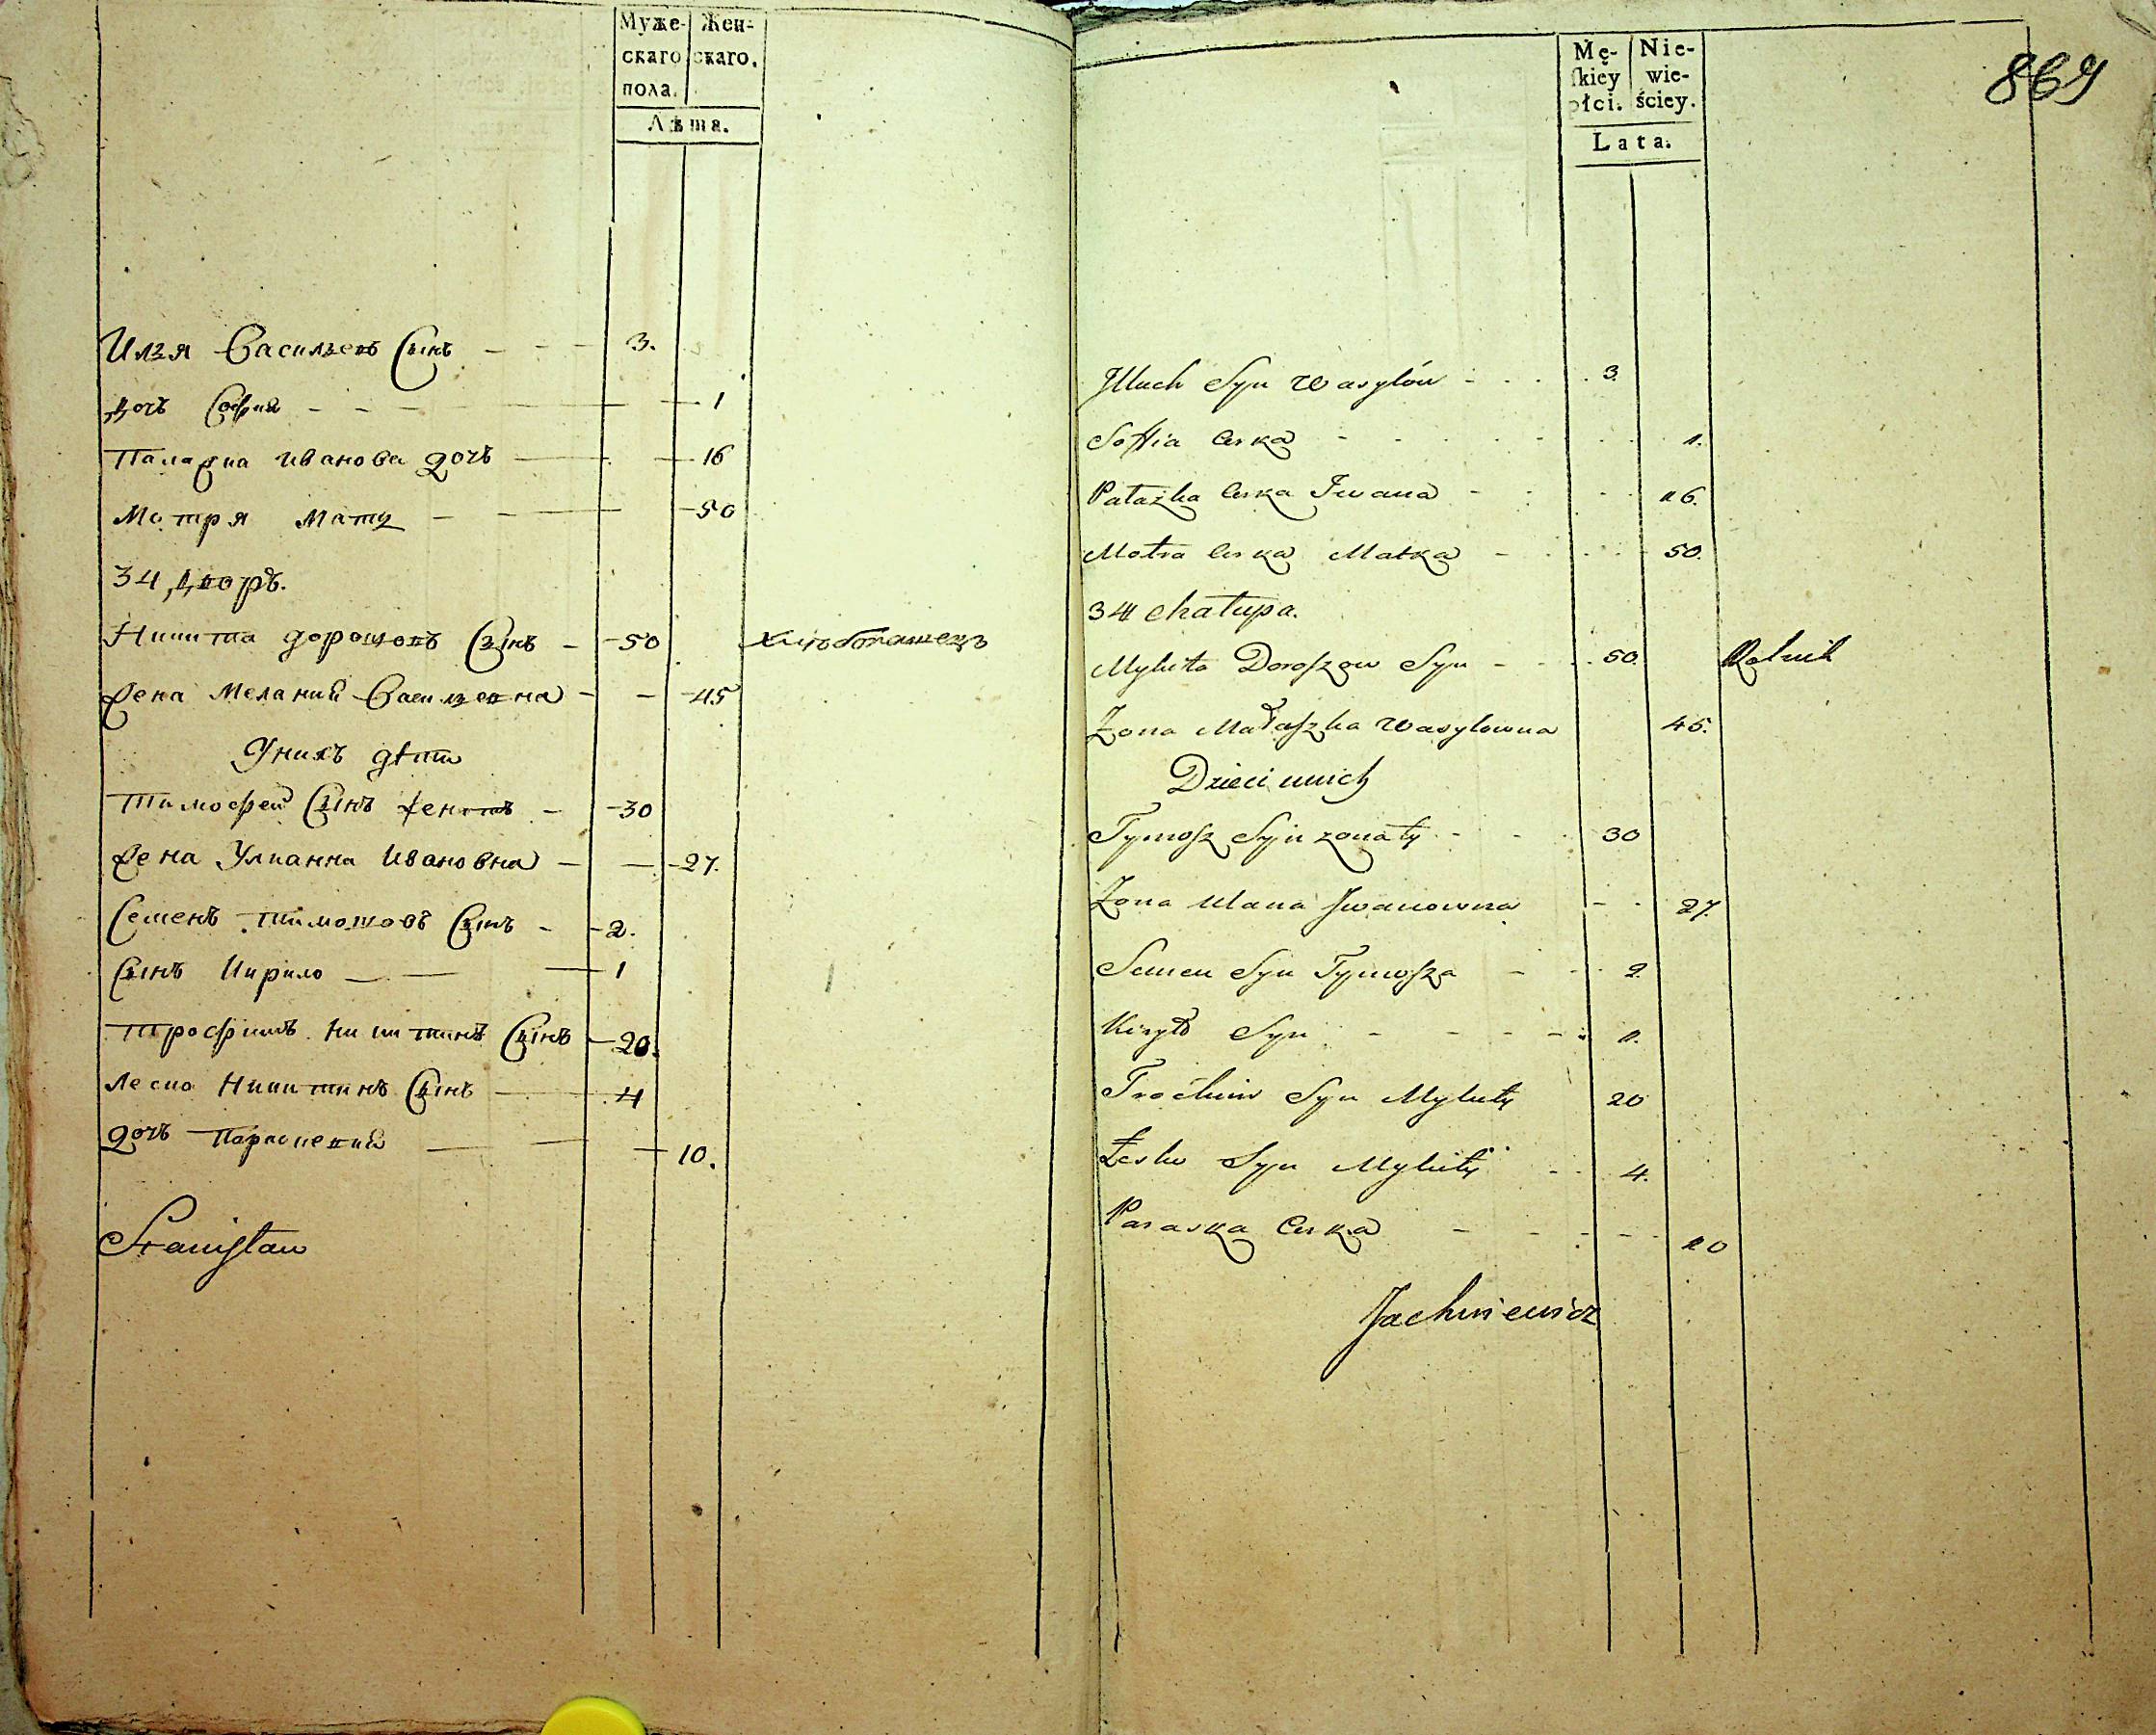 Муже- Жен-
скаго скаго.
пола.
Лѣта.
Илья Васильевъ Сынъ - - - 3.
дочь София - - - 1
Палажка иванова дочь - 16
Мотря Мать - - 50
34 дворъ.
Никита дорошовъ Сынъ - 50 хлѣбопашецъ
Жена Мелания Васильевна - - 45
Унихъ дѣти
Тимофей Сынъ женатъ - 30
Жена Улианна Ивановна - - 27.
Семенъ Тимошовъ Сынъ - 2.
Сынъ Кирило - - 1
Трофимъ Никитинъ Сынъ - 20.
Леско Никитинъ Сынъ - 4
дочь Парасковия - - 10.
Stanisław
869
Mę- Nie-
skiey wie-
płci. ściey.
Lata.
Illuch Syn Wasylów - . . . 3.
Soffia Curka - . . . 1.
Pałazka Curka Iwana - . . 16.
Motra Curka Matka - . . . 50.
34 chałupa.
Mykita Doroszow Syn - . . 50. Rolnik
Zona Małaszka Wasylowna 45.
Dzieci unich
Tymosz Syn zonaty - . . 30
Zona Ulana Iwanowna - . 27.
Semen Syn Tymosza - . . 2.
Kiryło Syn - - - 1.
Trochim Syn Mykity 20
Łesko Syn Mykity . . 4.
Paraska Curka - - - 10
Jachniewicz